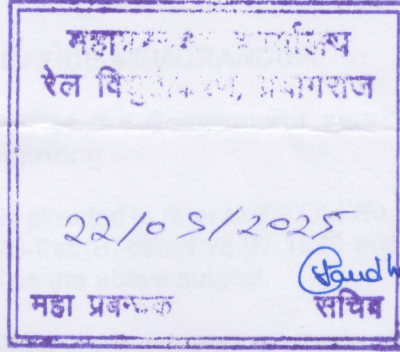 महाप्रबन्धक कार्यालय
रेल विद्युतीकरण, प्रयागराज
22/05/2025
महा प्रबन्धक सचिव